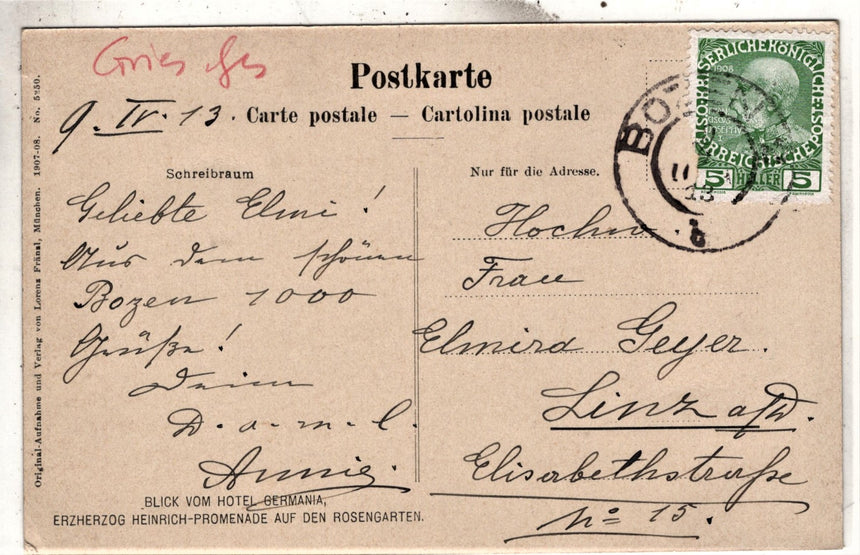 Gries
Postkarte
9. IV. 13.
Carte postale — Cartolina postale
Schreibraum
Geliebte Elmi!
Aus dem schönen
Bozen 1000
Grüße!
Deine
D. a. m. l.
Annie.
BLICK VOM HOTEL GERMANIA,
ERZHERZOG HEINRICH-PROMENADE AUF DEN ROSENGARTEN.
Original-Aufnahme und Verlag von Lorenz Fränzl, München. 1907-08. No. 5250.
Nur für die Adresse.
Hochw.
Frau
Elmira Geyer.
Linz a/D.
Elisabethstraße
No 15.
BOZEN
11
13
b
KAISERLICHEKÖNIGLICHE
ÖSTERREICHISCHE POST
1908
5 HELLER 5